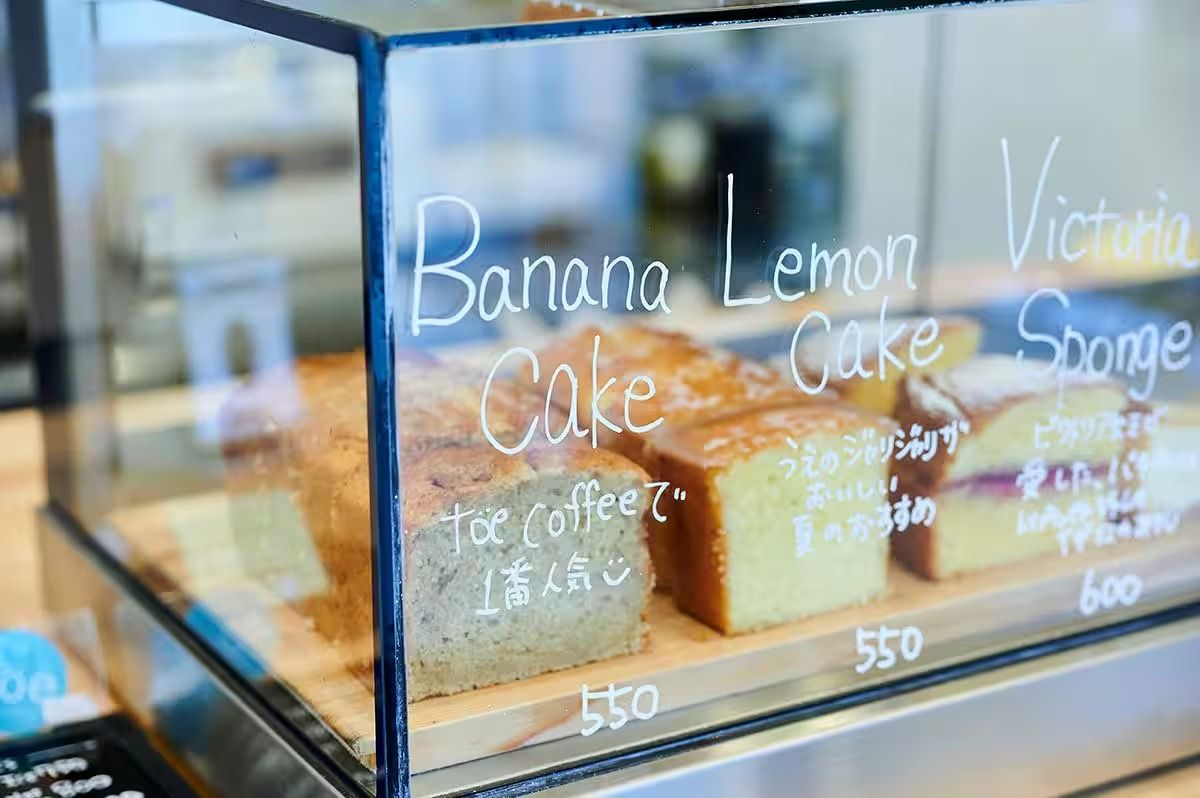 Banana
Cake
töe coffeeで
1番人気
550
Lemon
Cake
うえのジャリジャリが
おいしい
夏のおすすめ
550
Victoria
Sponge
愛した
600
öe